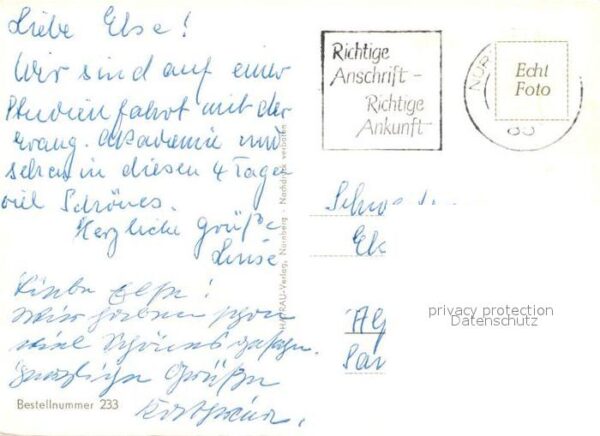 Liebe Else!
Wir sind auf einer
Studienfahrt mit der
Evang. Akademie und
sehen in diesen 4 Tagen
viel Schönes.
Herzliche Grüße
Luise
Liebe Else!
Wir haben schon
viel Schönes gesehen.
Herzliche Grüße
Bestellnummer 233
Verlag, Nürnberg - Nachdruck verboten
Richtige
Anschrift -
Richtige
Ankunft
NÜR
Echt
Foto
Schw
El
privacy protection
Datenschutz